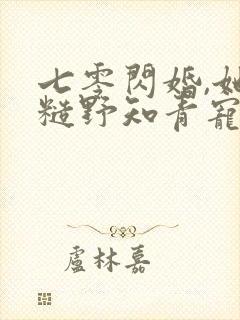 七零閃婚,她
糙野知青寵
盧林嘉